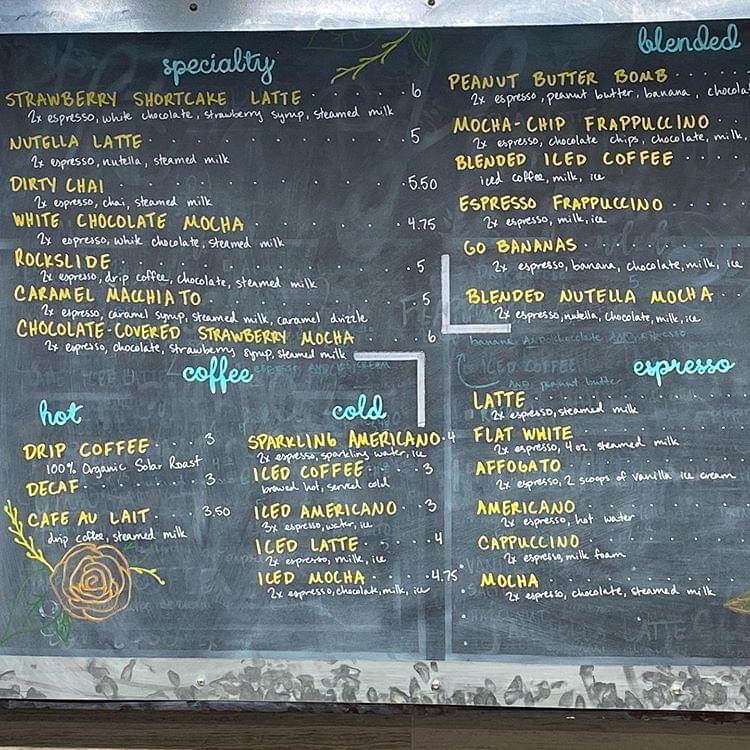 specialty
STRAWBERRY SHORTCAKE LATTE 6
2x espresso, white chocolate, strawberry syrup, steamed milk
NUTELLA LATTE 5
2x espresso, nutella, steamed milk
DIRTY CHAI 5.50
2x espresso, chai, steamed milk
WHITE CHOCOLATE MOCHA 4.75
2x espresso, white chocolate, steamed milk
ROCKSLIDE 5
2x espresso, drip coffee, chocolate, steamed milk
CARAMEL MACCHIATO 5
2x espresso, caramel syrup, steamed milk, caramel drizzle
CHOCOLATE-COVERED STRAWBERRY MOCHA 6
2x espresso, chocolate, strawberry syrup, steamed milk
coffee
hot
DRIP COFFEE 3
100% Organic Solar Roast
DECAF 3
CAFE AU LAIT 3.50
drip coffee, steamed milk
cold
SPARKLING AMERICANO 4
2x espresso, sparkling water, ice
ICED COFFEE 3
brewed hot, served cold
ICED AMERICANO 3
3x espresso, water, ice
ICED LATTE 4
2x espresso, milk, ice
ICED MOCHA 4.75
2x espresso, chocolate, milk, ice
blended
PEANUT BUTTER BOMB
2x espresso, peanut butter, banana, chocola
MOCHA-CHIP FRAPPUCCINO
2x espresso, chocolate chips, chocolate, milk,
BLENDED ICED COFFEE
iced coffee, milk, ice
ESPRESSO FRAPPUCCINO
2x espresso, milk, ice
GO BANANAS
2x espresso, banana, chocolate, milk, ice
BLENDED NUTELLA MOCHA
2x espresso, nutella, chocolate, milk, ice
banana AND chocolate AND espresso
ICED COFFEE
AND peanut butter
espresso
LATTE
2x espresso, steamed milk
FLAT WHITE
2x espresso, 4 oz. steamed milk
AFFOGATO
2x espresso, 2 scoops of vanilla ice cream
AMERICANO
2x espresso, hot water
CAPPUCCINO
2x espresso, milk foam
MOCHA
2x espresso, chocolate, steamed milk
LATTE